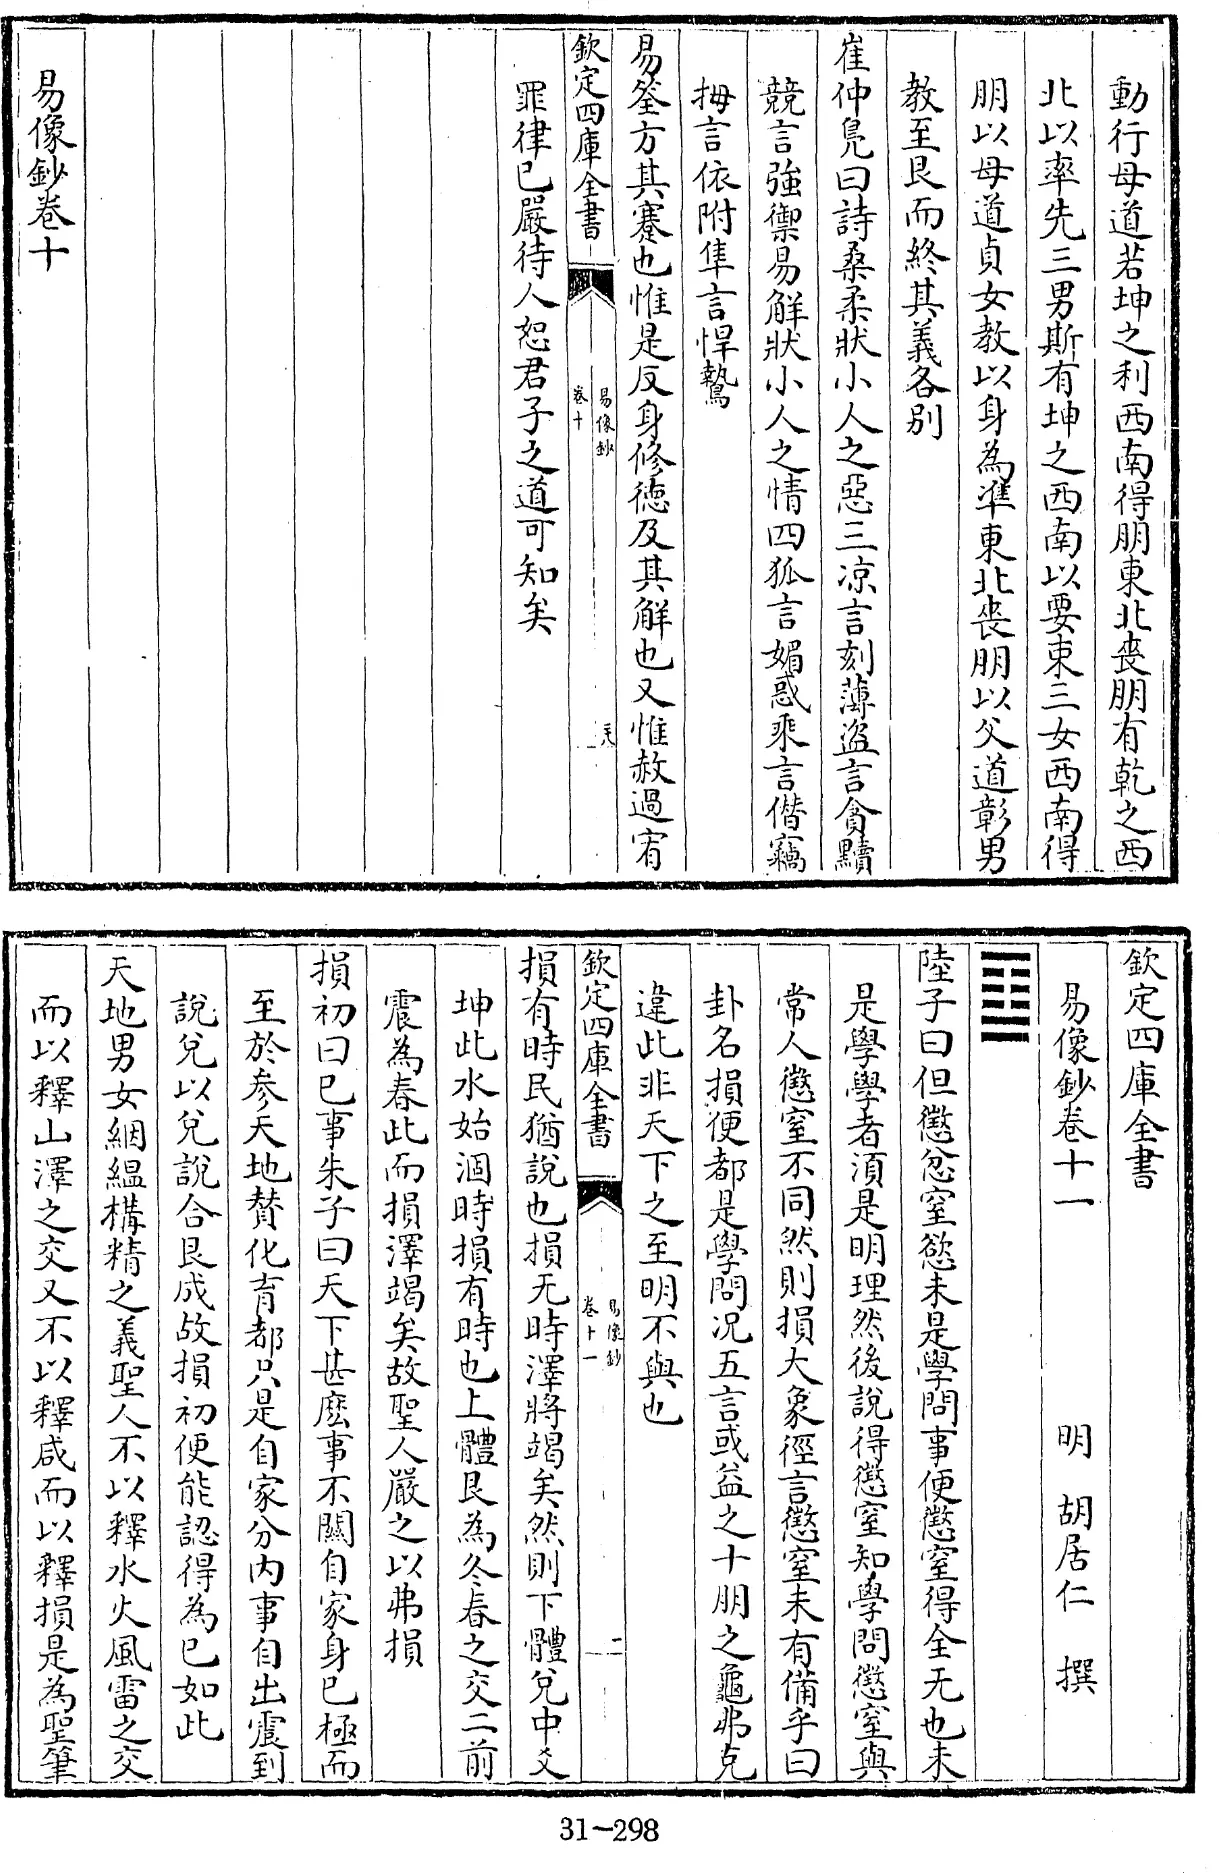 動行母道若坤之利西南得朋東北喪朋有乾之西
北以率先三男斯有坤之西南以要束三女西南得
朋以母道貞女教以身為準東北喪朋以父道彰男
教至艮而終其義各別
崔仲鳧曰詩桑柔狀小人之惡三涼言刻薄盜言貪黷
競言強禦易解狀小人之情四狐言媚惑乘言僭竊
拇言依附隼言悍鷙
易筌方其蹇也惟是反身修德及其解也又惟赦過宥
欽定四庫全書
易像鈔
卷十
罪律己嚴待人恕君子之道可知矣
易像鈔卷十
欽定四庫全書
易像鈔卷十一
明 胡居仁 撰
䷨
陸子曰但懲忿窒慾未是學問事便懲窒得全无也未
是學學者須是明理然後說得懲窒知學問懲窒與
常人懲窒不同然則損大象徑言懲窒未有備乎曰
卦名損便都是學問況五言或益之十朋之龜弗克
違此非天下之至明不與也
欽定四庫全書
易像鈔
卷十一
二
損有時民猶說也損无時澤將竭矣然則下體兌中爻
坤此水始涸時損有時也上體艮為冬春之交二前
震為春此而損澤竭矣故聖人嚴之以弗損
損初曰已事朱子曰天下甚麽事不關自家身已極而
至於參天地贊化育都只是自家分內事自出震到
說兌以兌說合艮成故損初便能認得為已如此
天地男女絪縕構精之義聖人不以釋水火風雷之交
而以釋山澤之交又不以釋咸而以釋損是為聖筆
31-298